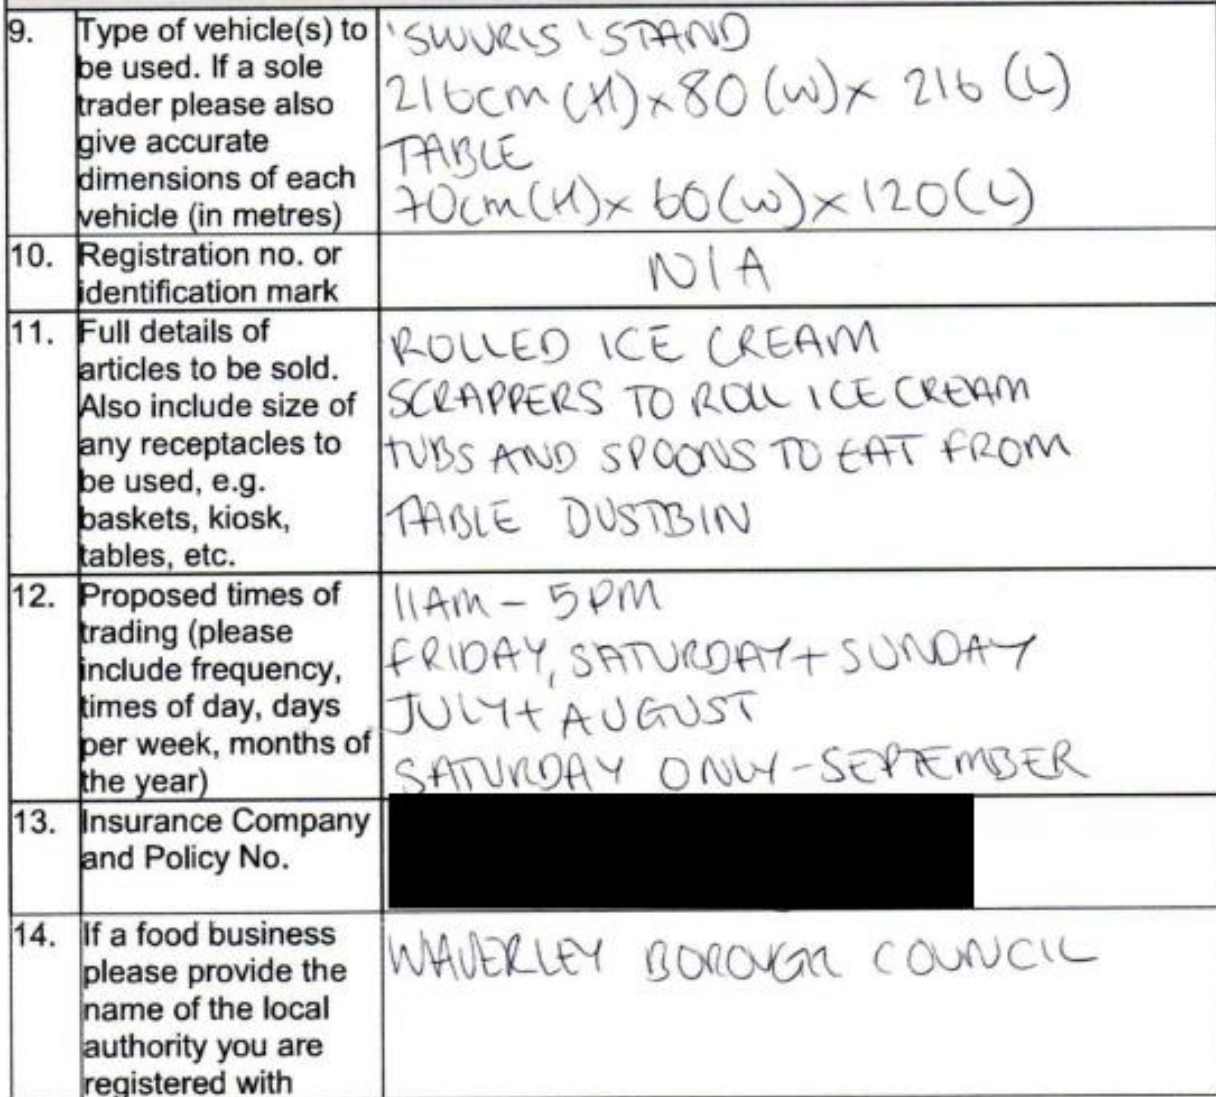 9. Type of vehicle(s) to
be used. If a sole
trader please also
give accurate
dimensions of each
vehicle (in metres)
'SWURLS' STAND
216cm (H) x 80 (W) x 216 (L)
TABLE
70cm (H) x 60 (W) x 120 (L)
10. Registration no. or
identification mark
N/A
11. Full details of
articles to be sold.
Also include size of
any receptacles to
be used, e.g.
baskets, kiosk,
tables, etc.
ROLLED ICE CREAM
SCRAPPERS TO ROLL ICE CREAM
TUBS AND SPOONS TO EAT FROM
TABLE DUSTBIN
12. Proposed times of
trading (please
include frequency,
times of day, days
per week, months of
the year)
11AM - 5PM
FRIDAY, SATURDAY + SUNDAY
JULY + AUGUST
SATURDAY ONLY - SEPTEMBER
13. Insurance Company
and Policy No.
14. If a food business
please provide the
name of the local
authority you are
registered with
WAVERLEY BOROUGH COUNCIL